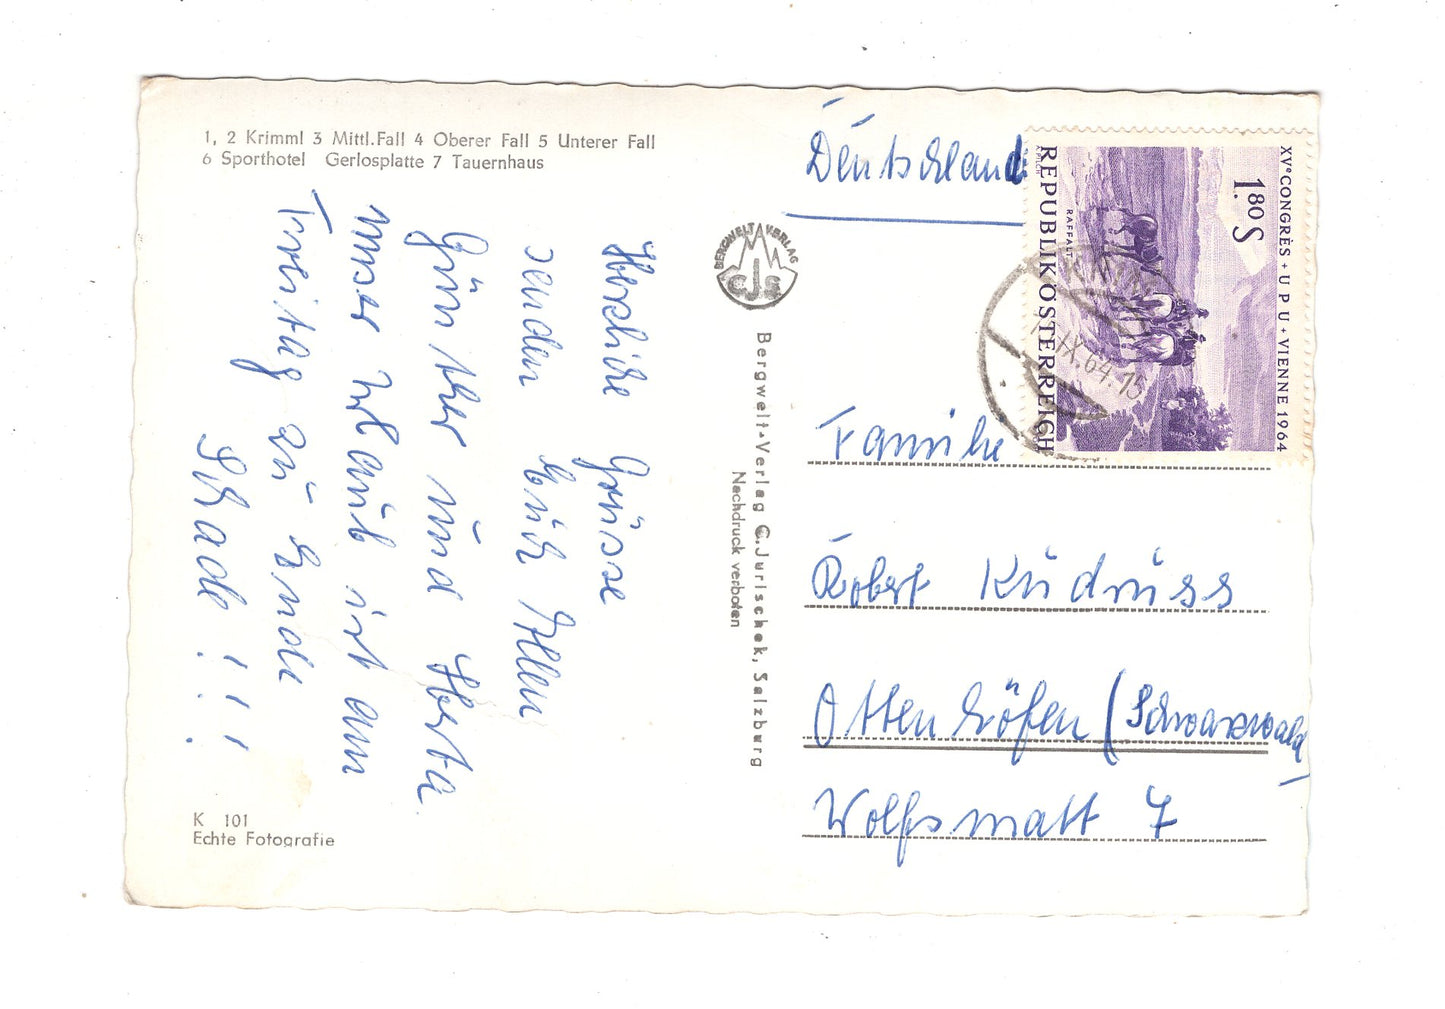 1, 2 Krimml 3 Mittl.Fall 4 Oberer Fall 5 Unterer Fall
6 Sporthotel Gerlosplatte 7 Tauernhaus
Herzliche Grüsse
senden Euch Allen
Günther und Herta
unser Urlaub ist am
Freitag zu Ende
Schade !!!
K 101
Echte Fotografie
BERGWELT VERLAG
CJS
Bergwelt-Verlag C.Jurischek, Salzburg
Nachdruck verboten
Deutschland
XVe CONGRÈS + UPU + VIENNE 1964
1.80 S
RAFFALT
REPUBLIK ÖSTERREICH
IX.64.15
Familie
Robert Kudruss
Ottenhöfen (Schwarzwald)
Wolfsmatt 7